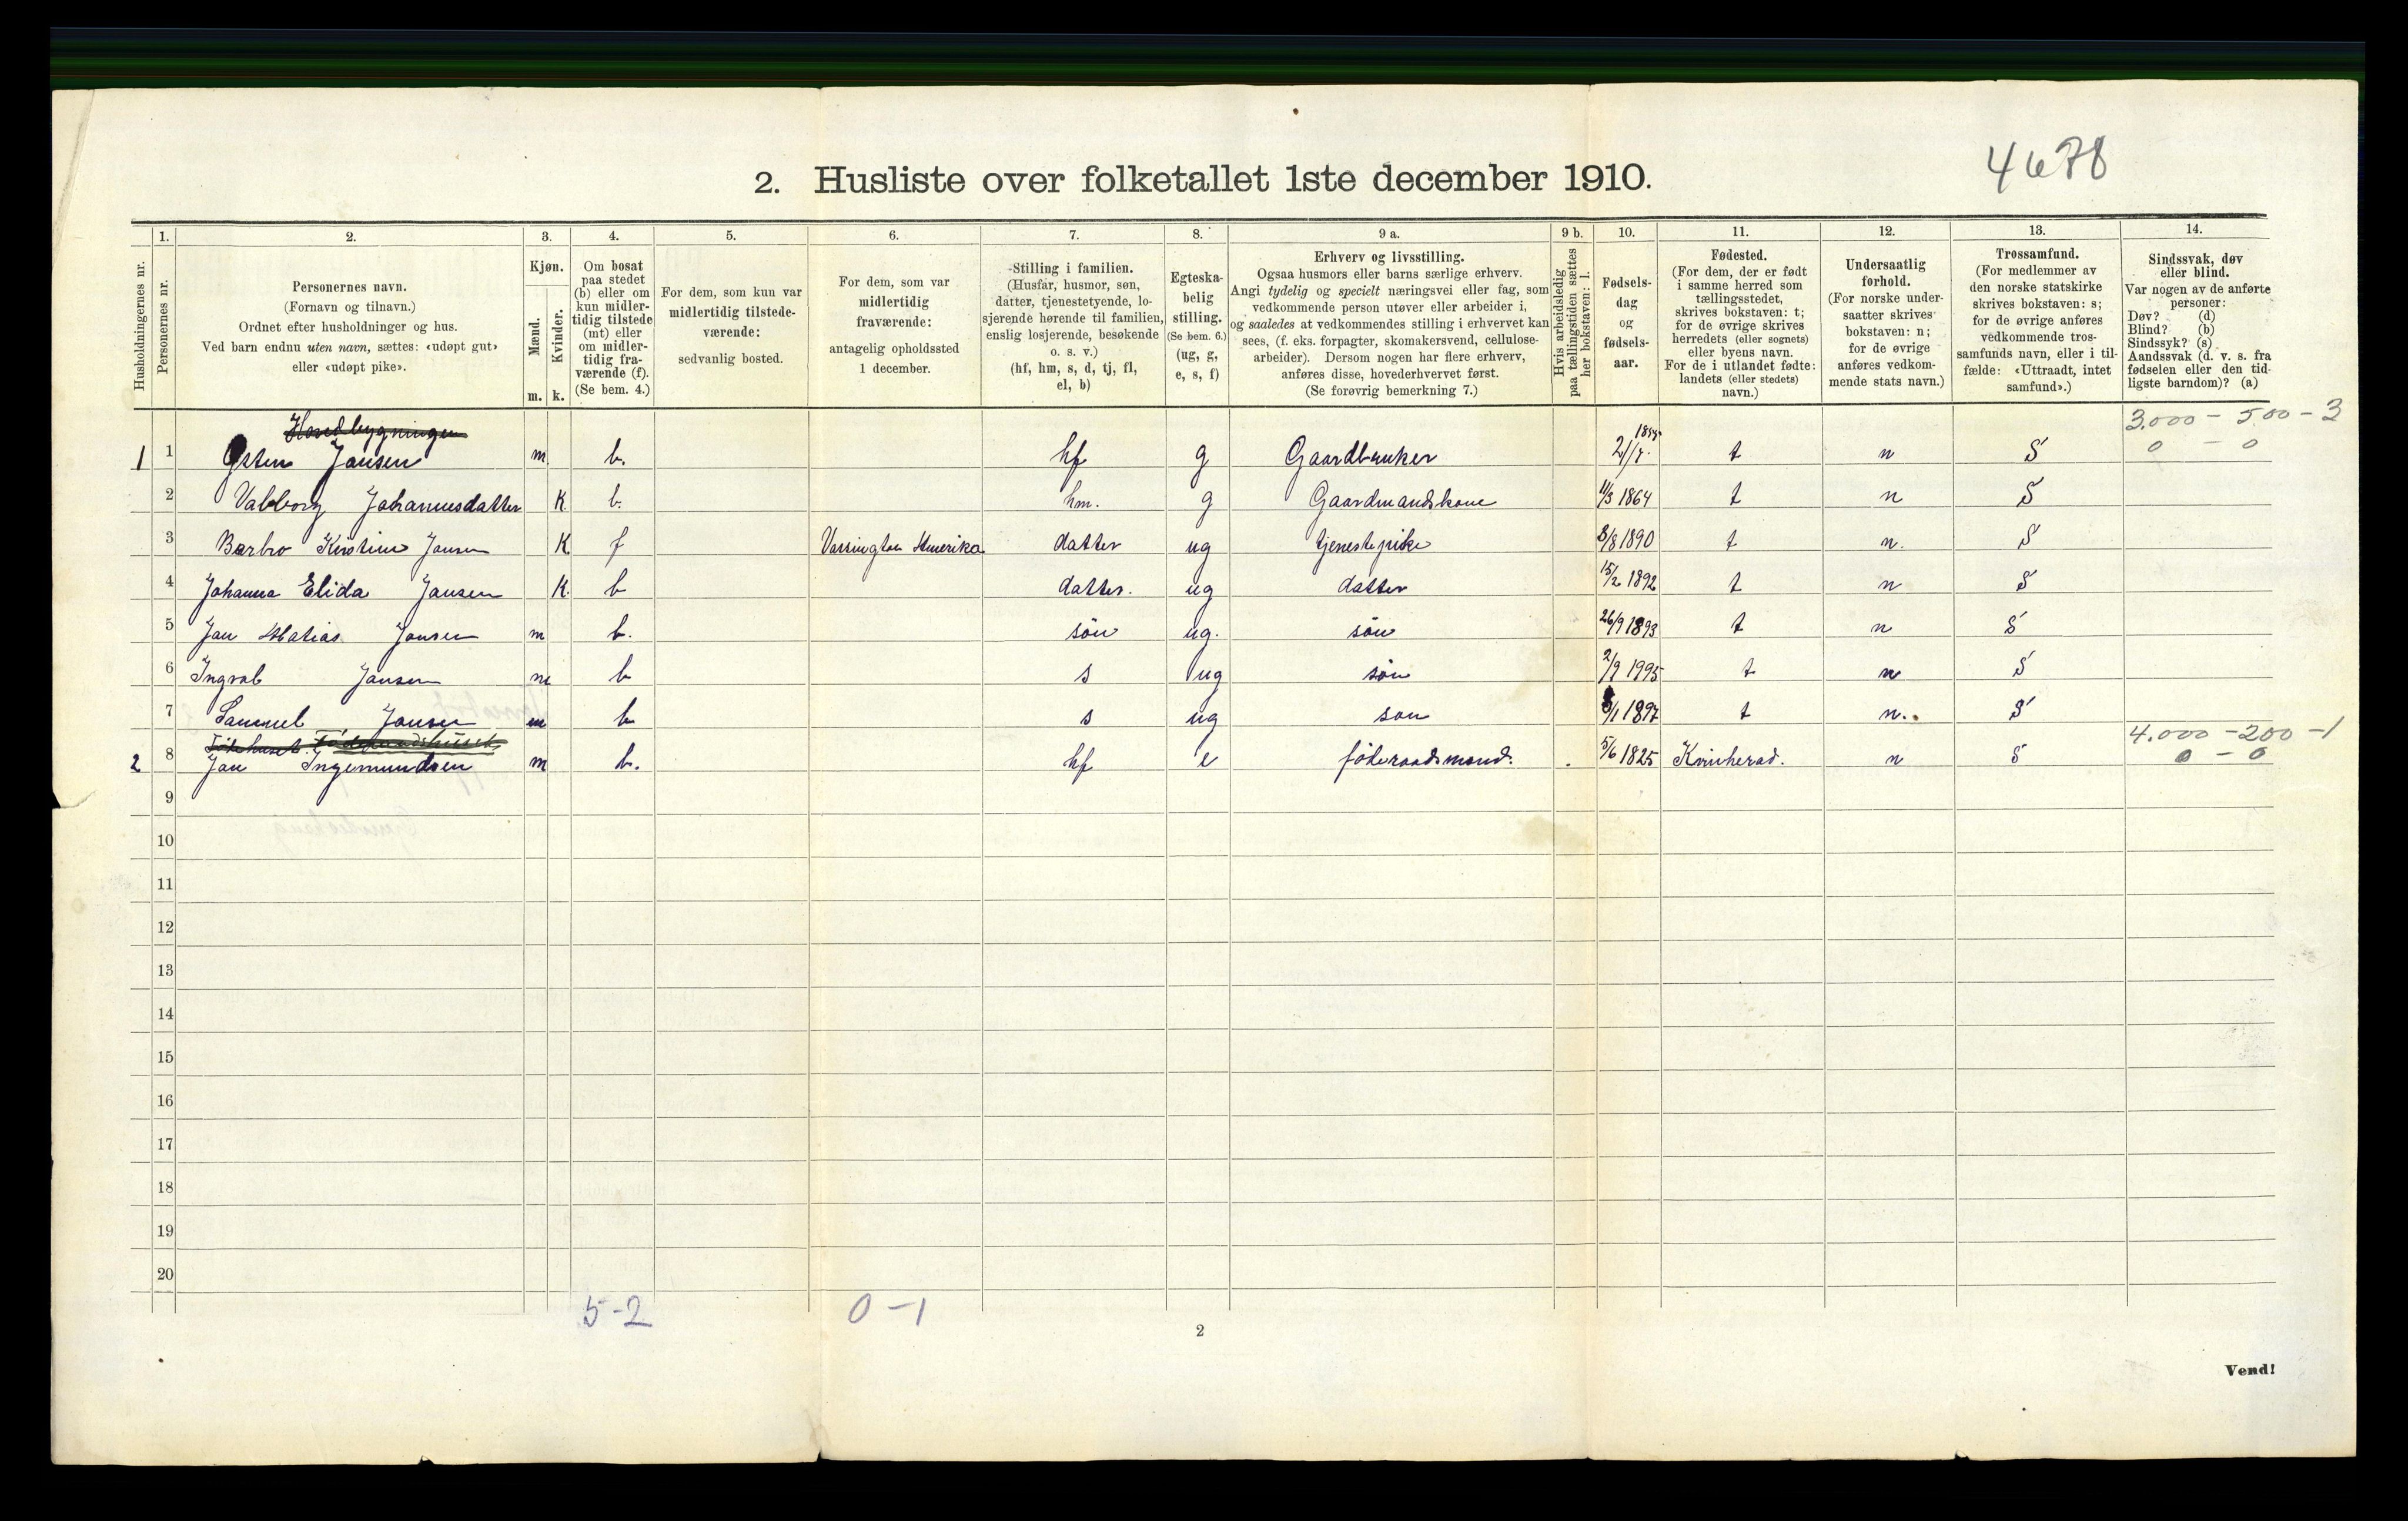 4678
2. Husliste over folketallet 1ste december 1910.
Husholdningernes nr.
1.
Personernes nr.
2.
Personernes navn.
(Fornavn og tilnavn.)
Ordnet efter husholdninger og hus.
Ved barn endnu uten navn, sættes: «udøpt gut»
eller «udøpt pike».
3.
Kjøn.
Mænd.
Kvinder.
m. k.
4.
Om bosat
paa stedet
(b) eller om
kun midler-
tidig tilstede
(mt) eller
om midler-
tidig fra-
værende (f).
(Se bem. 4.)
5.
For dem, som kun var
midlertidig tilstede-
værende:
sedvanlig bosted.
6.
For dem, som var
midlertidig
fraværende:
antagelig opholdssted
1 december.
7.
Stilling i familien.
(Husfar, husmor, søn,
datter, tjenestetyende, lo-
sjerende hørende til familien,
enslig losjerende, besøkende
o. s. v.)
(hf, hm, s, d, tj, fl,
el, b)
8.
Egteska-
belig
stilling.
(Se bem. 6.)
(ug, g,
e, s, f)
9 a.
Erhverv og livsstilling.
Ogsaa husmors eller barns særlige erhverv.
Angi tydelig og specielt næringsvei eller fag, som
vedkommende person utøver eller arbeider i,
og saaledes at vedkommendes stilling i erhvervet kan
sees, (f. eks. forpagter, skomakersvend, cellulose-
arbeider). Dersom nogen har flere erhverv,
anføres disse, hovederhvervet først.
(Se forøvrig bemerkning 7.)
9 b.
Hvis arbeidsledig
paa tællingstiden sættes
her bokstaven: l.
10.
Fødsels-
dag
og
fødsels-
aar.
11.
Fødested.
(For dem, der er født
i samme herred som
tællingsstedet,
skrives bokstaven: t;
for de øvrige skrives
herredets (eller sognets)
eller byens navn.
For de i utlandet fødte:
landets (eller stedets)
navn.)
12.
Undersaatlig
forhold.
(For norske under-
saatter skrives
bokstaven: n;
for de øvrige
anføres vedkom-
mende stats navn.)
13.
Trossamfund.
(For medlemmer av
den norske statskirke
skrives bokstaven: s;
for de øvrige anføres
vedkommende tros-
samfunds navn, eller i til-
fælde: «Uttraadt, intet
samfund».)
14.
Sindssvak, døv
eller blind.
Var nogen av de anførte
personer:
Døv? (d)
Blind? (b)
Sindssyk? (s)
Aandssvak (d. v. s. fra
fødselen eller den tid-
ligste barndom)? (a)
Hovedbygningen 3.000 - 500 - 3
1 1 Østen Jansen m b. hf g Gaardbruker 21/7. t n S 0 - 0
2 Valborg Johannesdatter K. b. hm. g Gaardmandskone 11/3 1864 t n S
3 Barbro Kristine Jansen K f Vassington Amerika datter ug tjenestepike 3/8 1890 t n. S
4 Johanna Elida Jansen K. b datter. ug datter 15/2 1892 t n S
5 Jan Matias Jansen m b. søn ug. søn 26/9 1893 t n S
6 Ingvald Jansen m b s ug søn 2/9 1995 t n S
7 Samuel Jansen m b s ug son /1 1897 t n. S
4.000 - 200 - 1
2 8 Jan Ingemundsen m b. hf e føderaadsmand. 5/6 1825 Kvinherad. n S 0 - 0
9
10
11
12
13
14
15
16
17
18
19
20
5-2 0-1
2
Vend!